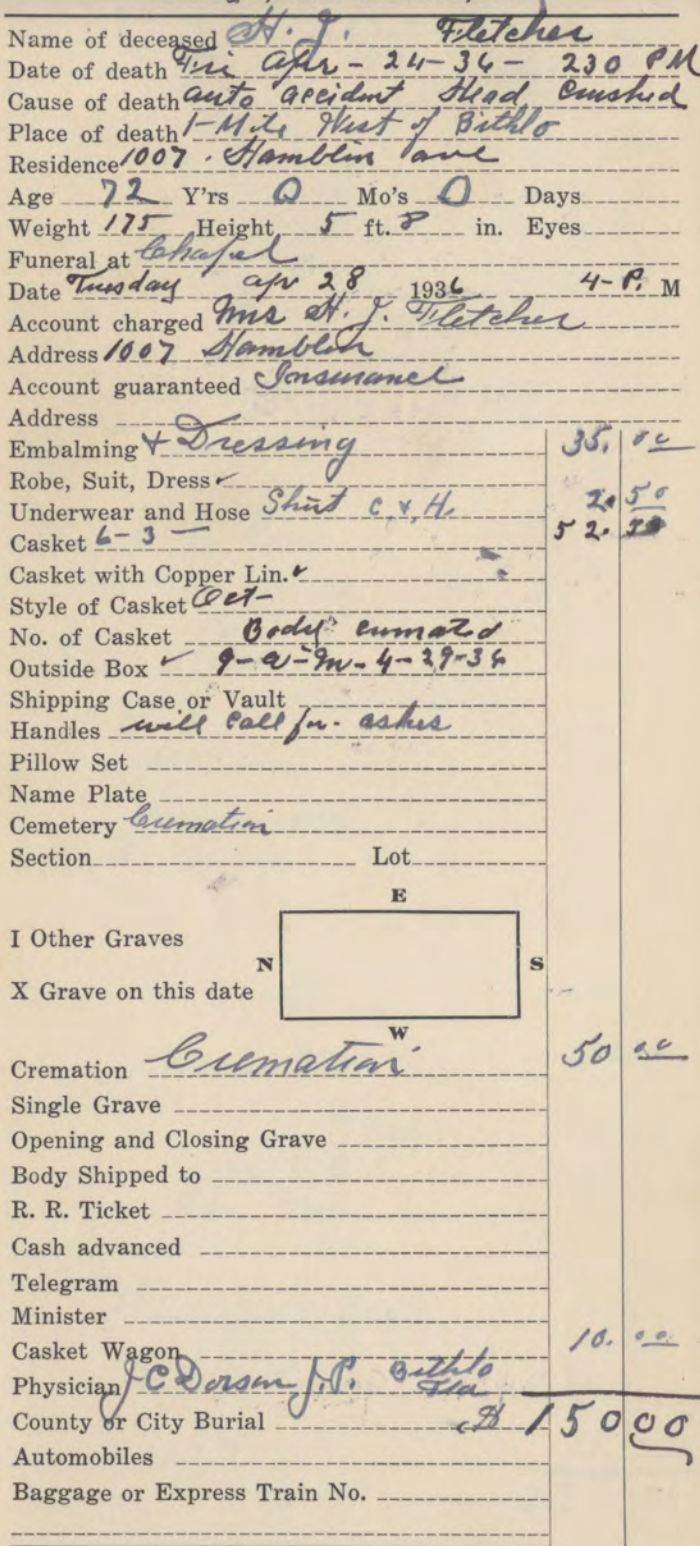 Name of deceased H. J. Fletcher
Date of death Fri Apr - 24-36 - 230 PM
Cause of death auto accident Head Crushed
Place of death 1-Mile West of Bithlo
Residence 1007 . Hamblin ave
Age 72 Y'rs 0 Mo's 0 Days
Weight 175 Height 5 ft. 8 in. Eyes
Funeral at Chapel
Date Tuesday apr 28 1936 4-P. M
Account charged Mrs H. J. Fletcher
Address 1007 Hamblin
Account guaranteed Insurance
Address
Embalming + Dressing 35. 00
Robe, Suit, Dress ✓
Underwear and Hose Shirt C. & H. 2. 50
Casket 6-3 — 52. 50
Casket with Copper Lin. ✓
Style of Casket Oct-
No. of Casket Body cremated
Outside Box ✓ 9-a-m-4-29-36
Shipping Case or Vault
Handles will call for ashes
Pillow Set
Name Plate
Cemetery Cremation
Section Lot
E
I Other Graves
N S
X Grave on this date
W
Cremation Cremation 50 00
Single Grave
Opening and Closing Grave
Body Shipped to
R. R. Ticket
Cash advanced
Telegram
Minister
Casket Wagon 10. 00
Physician J C Dorsan J.P. Bithlo Fla
County or City Burial $ 150 00
Automobiles
Baggage or Express Train No.